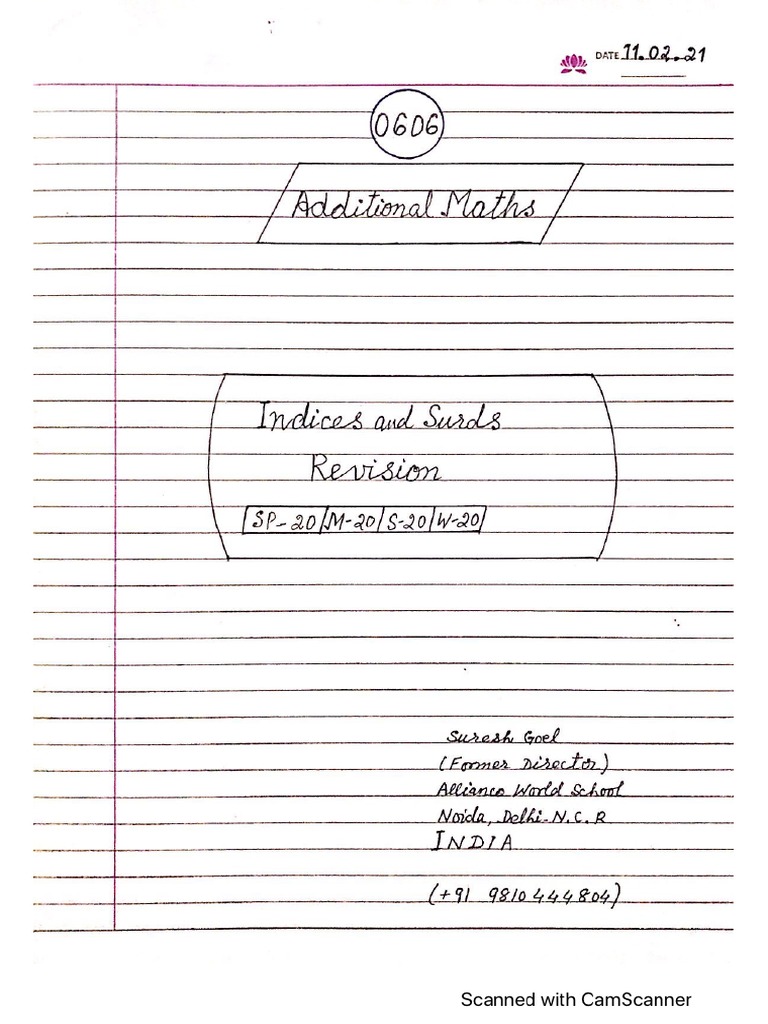 DATE 11.02.21
0606
Additional Maths
Indices and Surds
Revision
SP-20 M-20 S-20 W-20
Suresh Goel
(Former Director)
Alliance World School
Noida, Delhi-N.C.R
INDIA
(+91 9810444804)
Scanned with CamScanner